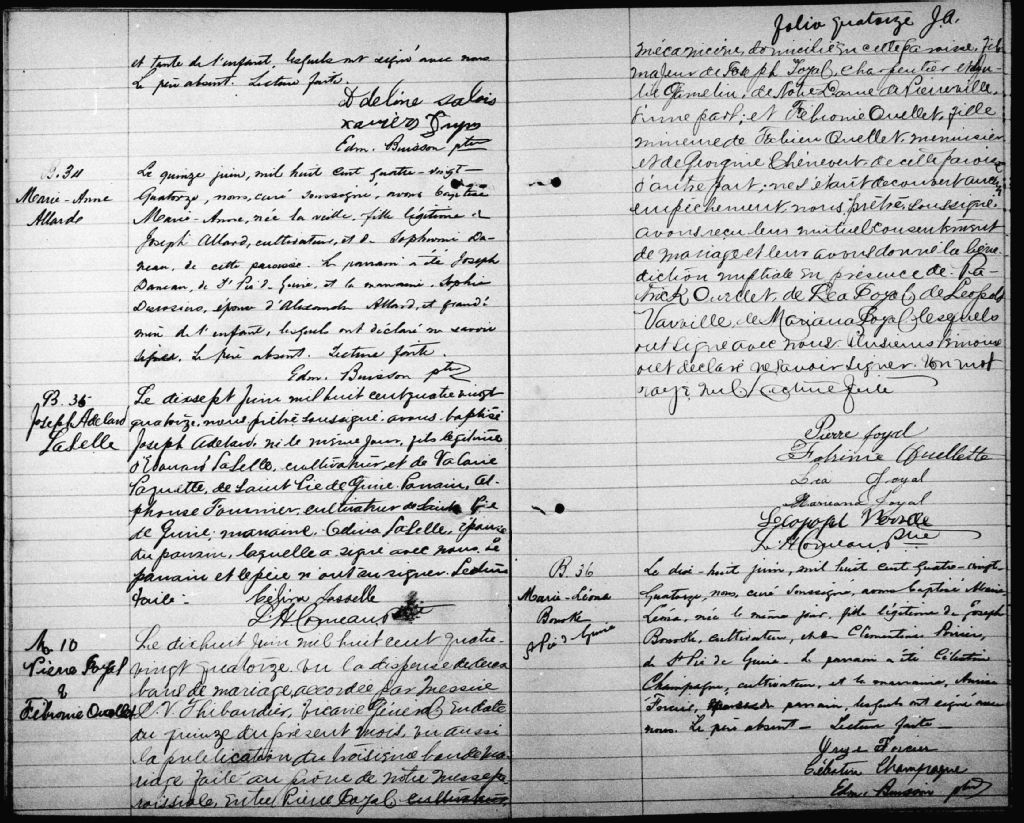 et tante de l'enfant, lesquels ont signé avec nous
Le père absent. Lecture faite.
Adeline Salois
Xavier
Edm. Buisson ptre
B. 34
Marie-Anne
Allard
Le quinze juin, mil huit cent quatre-vingt-
quatorze, nous, curé soussigné, avons baptisé
Marie-Anne, née la veille, fille légitime de
Joseph Allard, cultivateur, et de Sophronie Da-
neau, de cette paroisse. Le parrain a été Joseph
Daneau, de St Pie de Guire, et la marraine, Sophie
Desrosiers, épouse d'Alexandre Allard, et grand'
mère de l'enfant, lesquels ont déclaré ne savoir
signer. Le père absent. Lecture faite.
Edm. Buisson ptre
B. 35
Joseph Adelard
LaSelle
Le dixsept Juin mil huit cent quatre vingt
quatorze, nous prêtre soussigné avons baptisé
Joseph Adelard, né le même jour, fils légitime
d'Edouard LaSelle, cultivateur et de Valarie
Paquette, de Saint Pie de Guire. Parrain, Al-
phonse Fournier, cultivateur de Saint Pie
de Guire; marraine, Edina LaSelle, épouse
du parrain, laquelle a signé avec nous. Le
parrain et le père n'ont su signer. Lecture
faite.
Lasselle
L. H. Comeau ptre
M 10
Pierre Foyal
&
Fébronie Ouellet
Le dixhuit Juin mil huit cent quatre-
vingt quatorze, vu la dispense de deux
bans de mariage accordée par Messire
C. V. Thibaudier, Vicaire Général, en date
du quinze du présent mois, vu aussi
la publication du troisième ban de ma-
riage faite au prône de notre messe pa-
roissiale, entre Pierre Foyal, cultivateur,
Folio quatorze J.A.
mécanicien, domicilié en cette paroisse, fils
majeur de Joseph Foyal, charpentier et
Gamelin, de Notre Dame de Pierreville,
d'une part; et Fébronie Ouellet, fille
mineure de Fabien Ouellet, menuisier
et de Georgine Chênevert, de cette paroisse
d'autre part; ne s'étant découvert aucun
empêchement, nous, prêtre, soussigné,
avons reçu leur mutuel consentement
de mariage et leur avons donné la béné-
diction nuptiale en présence de Pa-
trick Ouellet, de Léa Foyal, de Léopold
Vanville, de Mariana Foyal, lesquels
ont signé avec nous. Plusieurs témoins
ont déclaré ne savoir signer. Un mot
rayé nul. Lecture faite
Pierre foyal
Febrinie Ouellette
Léa foyal
Mariana Foyal
Leopold
L. H. Comeau, ptre
B. 36
Marie-Léona
St Pie de Guire
Le dix-huit juin, mil huit cent quatre-vingt-
quatorze, nous, curé soussigné, avons baptisé Marie-
Léona, née le même jour, fille légitime de Joseph
cultivateur, et de Clémentine
de St Pie de Guire. Le parrain a été Célestin
Champagne, cultivateur, et la marraine,
Forcier, parrain, lesquels ont signé avec
nous. Le père absent. Lecture faite
Forcier
Célestin Champagne
Edm. Buisson ptre